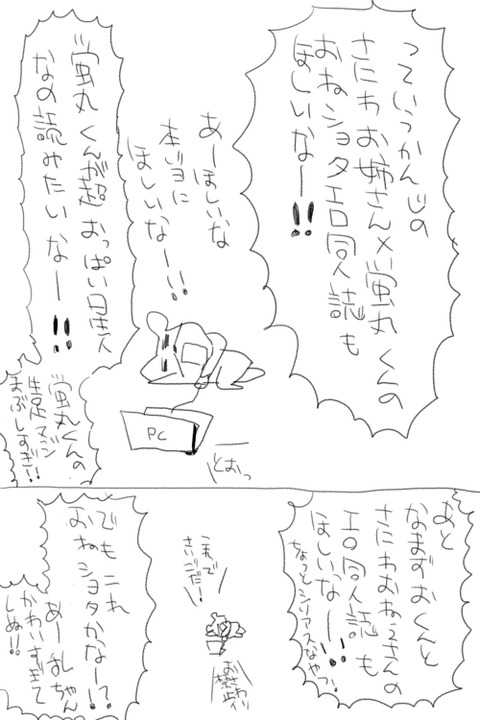 っていうかんじの
さにわお姉さん×蛍丸くんの
おねショタエロ同人誌も
ほしいなー!!
あーほしいな
本当に
ほしいなー!!
蛍丸くんが超おっぱい星人
なの読みたいなー!!
蛍丸くんの
生足マジ
まぶしすぎ!!
PC
とおっ
あと
なまずおくんと
さにわおねえさんの
エロ同人誌も
ほしいなー!!
ちょっとシリアスなやつ
さいごだ!
でもこれ
おねショタかなー!?
あー乱ちゃん
かわいすぎて
しぬ!!